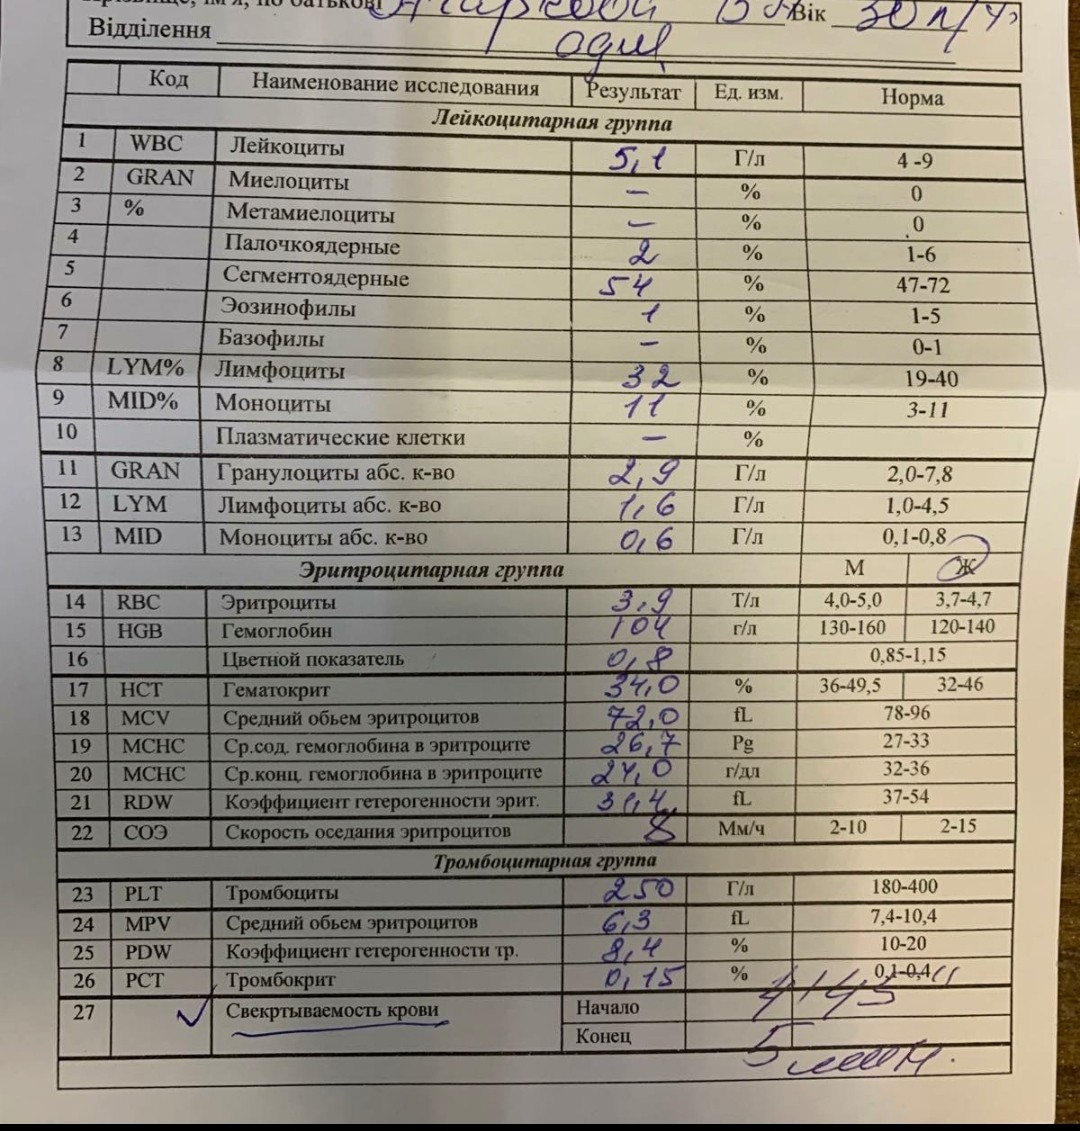 Прізвище, ім'я, по батькові Вік 30
Відділення
Код Наименование исследования Результат Ед. изм. Норма
Лейкоцитарная группа
1 WBC Лейкоциты 5,1 Г/л 4 -9
2 GRAN Миелоциты – % 0
3 % Метамиелоциты – % 0
4 Палочкоядерные 2 % 1-6
5 Сегментоядерные 54 % 47-72
6 Эозинофилы 1 % 1-5
7 Базофилы – % 0-1
8 LYM% Лимфоциты 32 % 19-40
9 MID% Моноциты 11 % 3-11
10 Плазматические клетки – %
11 GRAN Гранулоциты абс. к-во 2,9 Г/л 2,0-7,8
12 LYM Лимфоциты абс. к-во 1,6 Г/л 1,0-4,5
13 MID Моноциты абс. к-во 0,6 Г/л 0,1-0,8
Эритроцитарная группа М Ж
14 RBC Эритроциты 3,9 Т/л 4,0-5,0 3,7-4,7
15 HGB Гемоглобин 104 г/л 130-160 120-140
16 Цветной показатель 0,8 0,85-1,15
17 HCT Гематокрит 34,0 % 36-49,5 32-46
18 MCV Средний обьем эритроцитов 72,0 fL 78-96
19 MCHC Ср.сод. гемоглобина в эритроците 26,7 Pg 27-33
20 MCHC Ср.конц. гемоглобина в эритроците г/дл 32-36
21 RDW Коэффициент гетерогенности эрит. 31,4 fL 37-54
22 СОЭ Скорость оседания эритроцитов 8 Мм/ч 2-10 2-15
Тромбоцитарная группа
23 PLT Тромбоциты 250 Г/л 180-400
24 MPV Средний обьем эритроцитов 6,3 fL 7,4-10,4
25 PDW Коэффициент гетерогенности тр. 8,4 % 10-20
26 PCT Тромбокрит 0,15 % 0,1-0,4
27 Свекртываемость крови Начало 4'45"
Конец 5 мин.